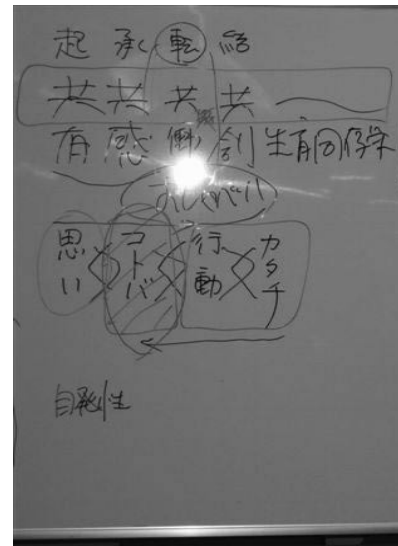 起 承 転 結
共 共 共 共
有 感 働 創 生 育 同 係 学
思い コトバ 行動 カタチ
自発性